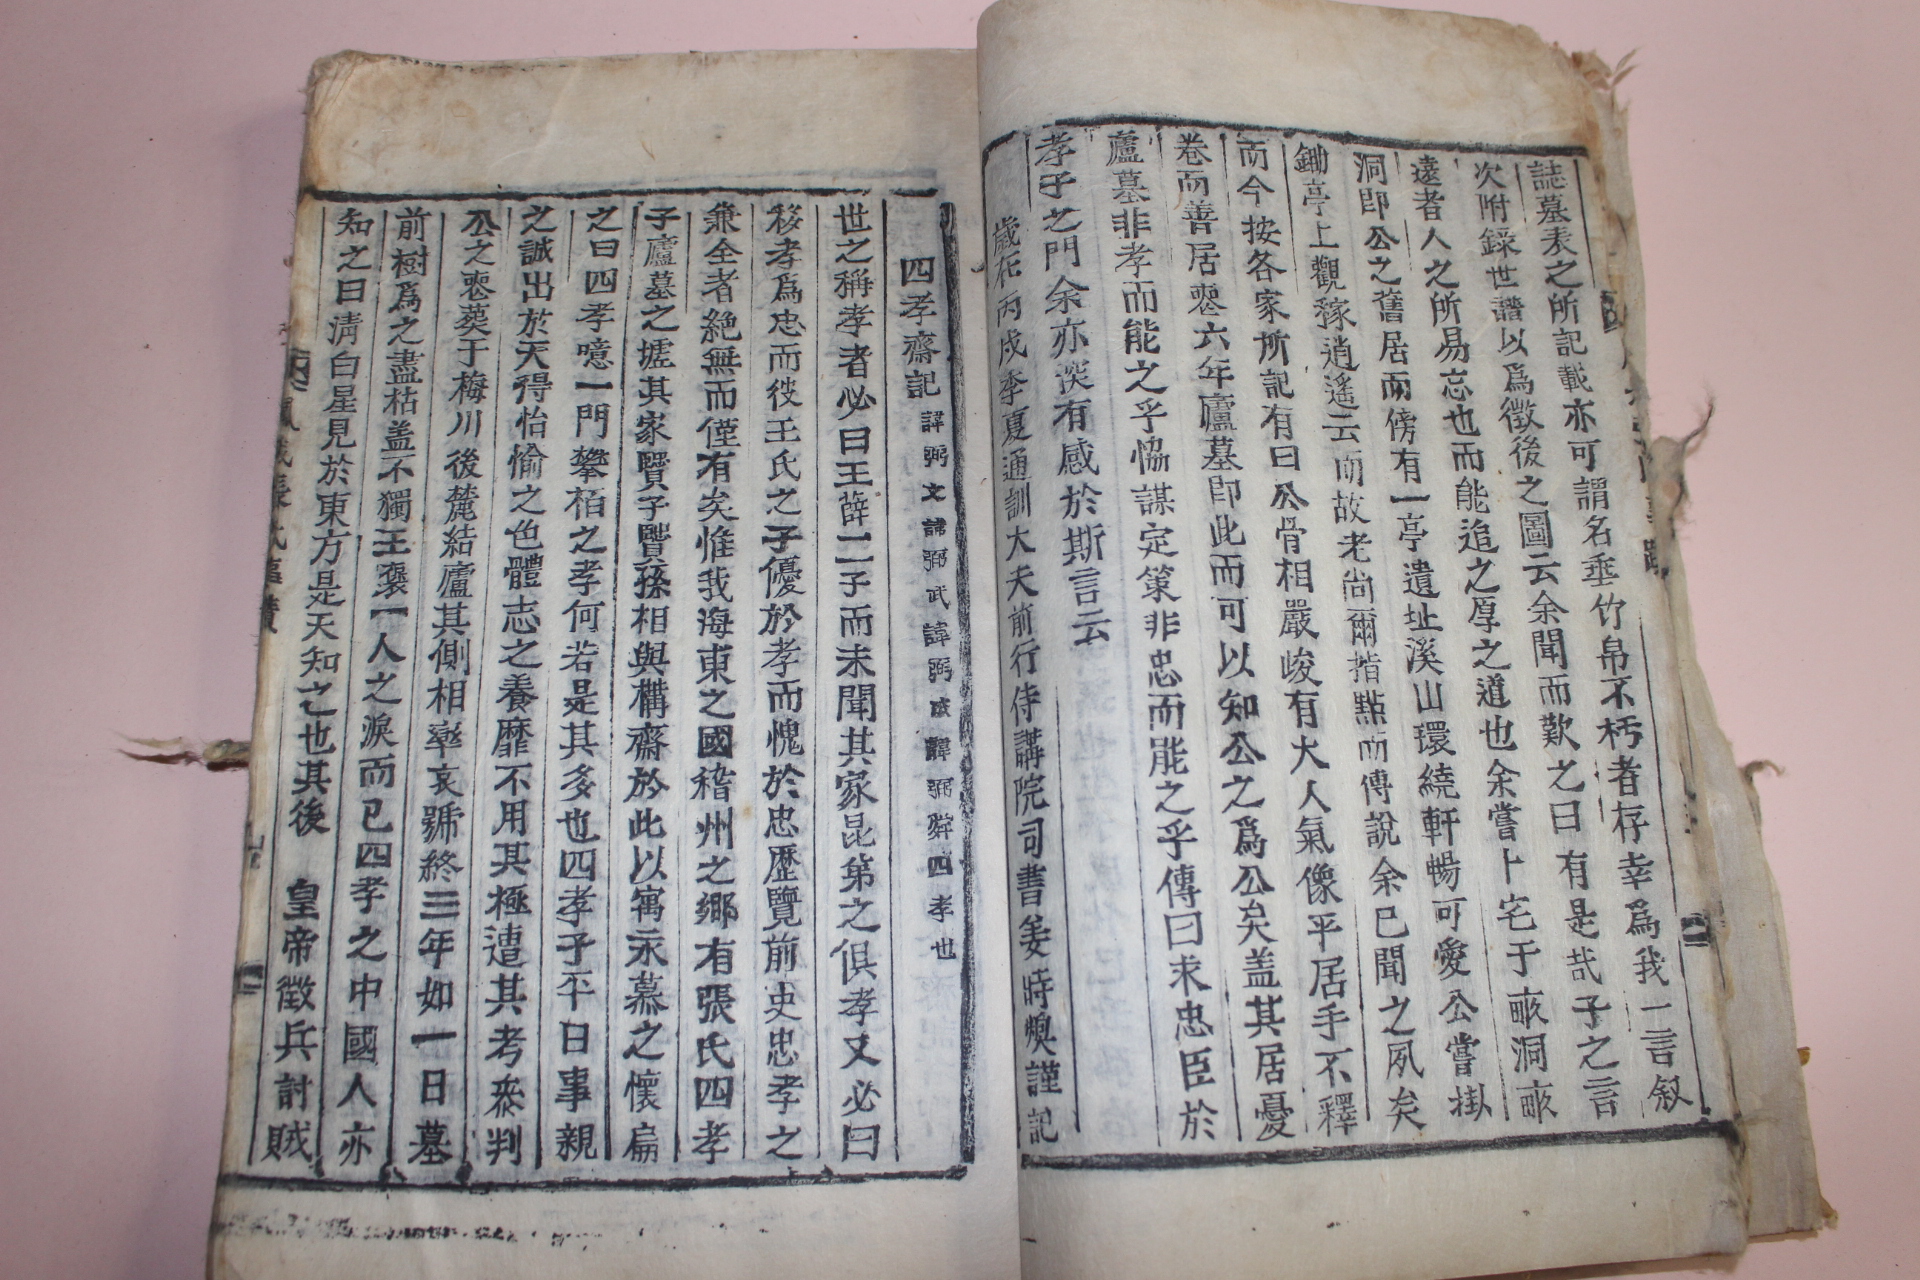 誌墓表之所記載亦可謂名垂竹帛不朽者存幸爲我一言叙
次附錄世譜以爲徵後之圖云余聞而歎之曰有是哉子之言
遠者人之所易忘也而能追之厚之道也余嘗卜宅于畞洞畞
洞卽公之舊居而傍有一亭遺址溪山環繞軒暢可愛公嘗掛
鋤亭上觀稼逍遙云而故老尙爾指點而傳說余已聞之夙矣
而今按各家所記有曰公骨相嚴峻有大人氣像平居手不釋
卷而善居喪六年廬墓卽此而可以知公之爲公矣盖其居憂
廬墓非孝而能之乎恊謀定策非忠而能之乎傳曰求忠臣於
孝子之門余亦深有感於斯言云
歲在丙戌季夏通訓大夫前行侍講院司書姜時煥謹記
四孝齋記 諱弼文諱弼武諱弼 諱弼 四孝也
世之稱孝者必曰王薛二子而未聞其家昆第之俱孝又必曰
移孝爲忠而彼王氏之子優於孝而愧於忠歷覽前史忠孝之
兼全者絶無而僅有矣惟我海東之國 州之鄉有張氏四孝
子廬墓之墟其家賢子賢孫相與構齋於此以寓永慕之懷扁
之曰四孝噫一門攀栢之孝何若是其多也四孝子平日事親
之誠出於天得怡愉之色體志之養靡不用其極遭其考叅判
公之喪葬于梅川後麓結廬其側相率哀號終三年如一日墓
前樹爲之盡枯盖不獨王裒一人之淚而已四孝之中國人亦
知之曰淸白星見於東方是天知之也其後 皇帝徵兵討賊